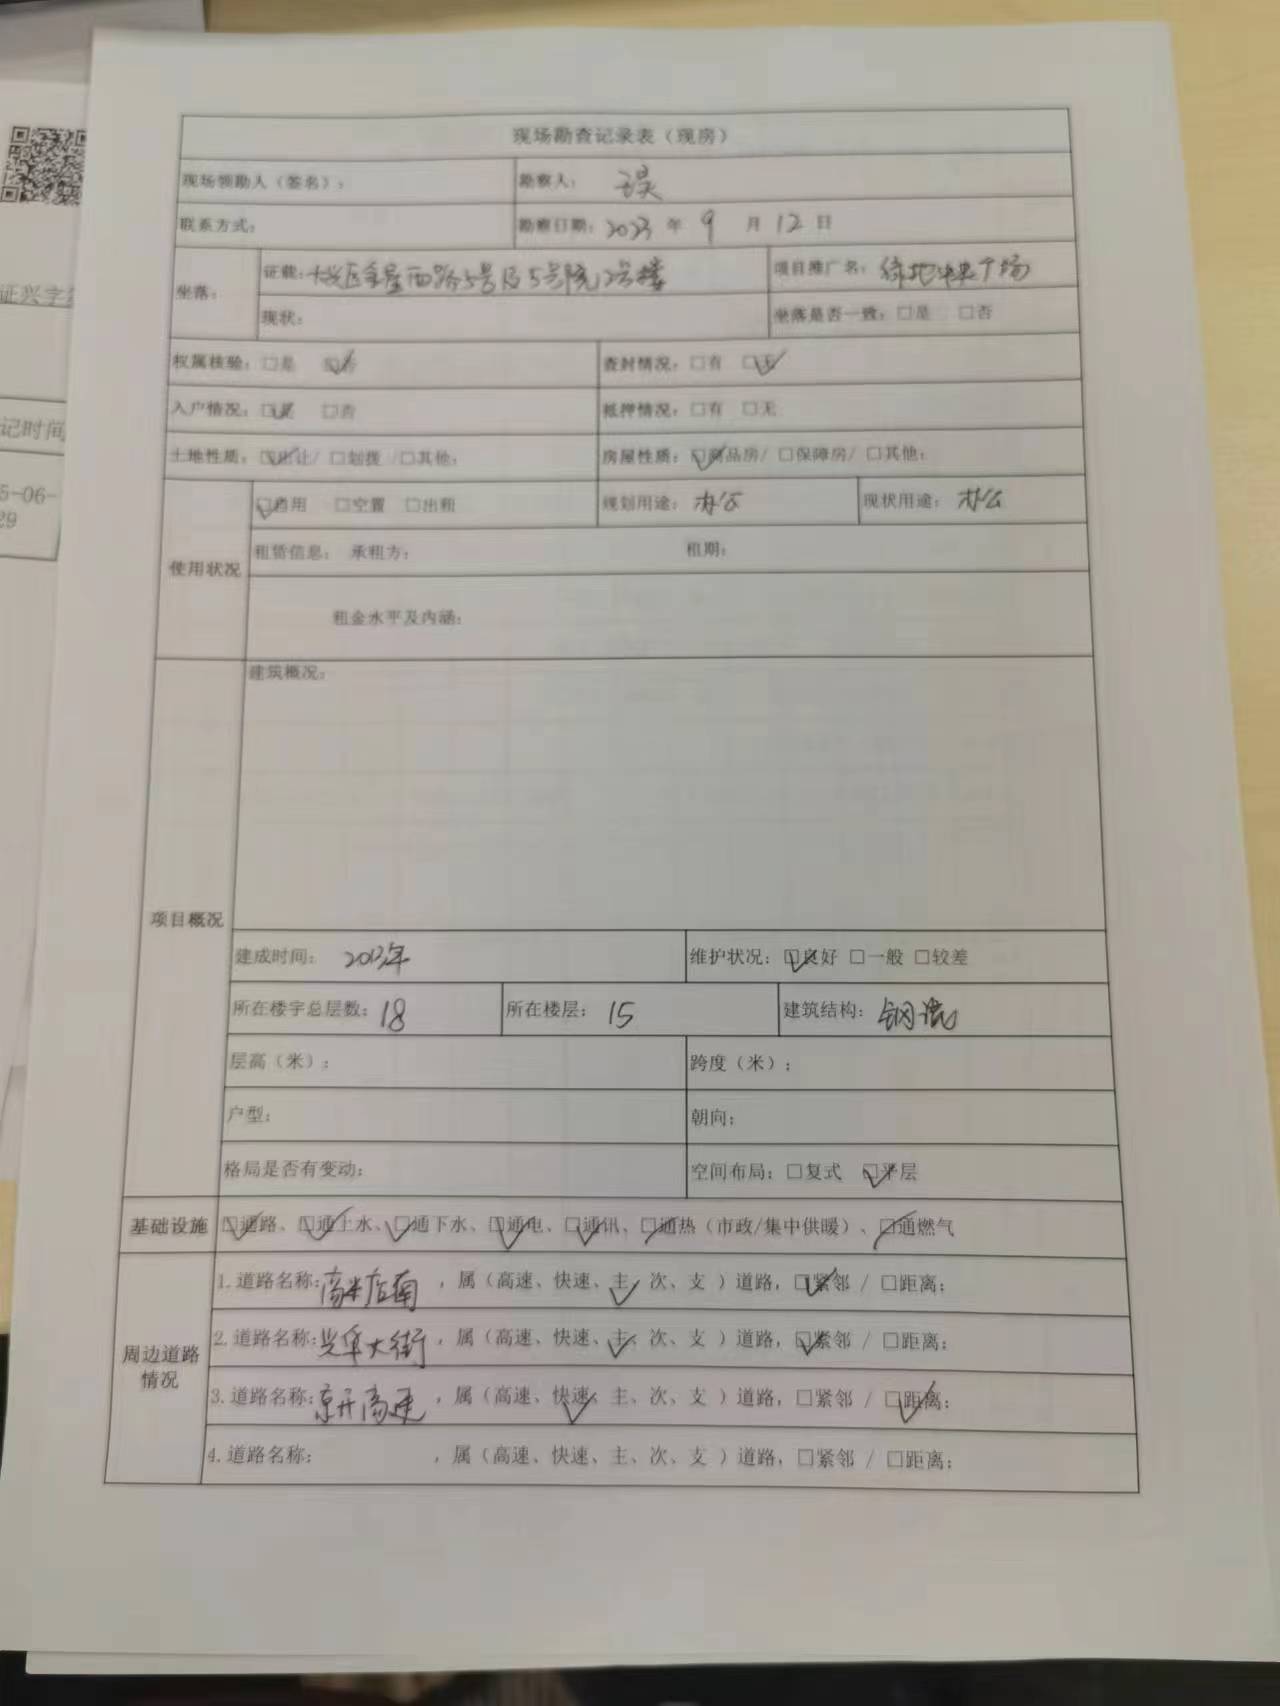 证兴字
记时间
5-06-
29
现场勘查记录表（现房）
现场领勘人（签名）： 勘察人：
联系方式： 勘察日期：2023 年 9 月 12 日
坐落： 证载：大兴区金星西路5号及5号院2号楼 项目推广名：绿地中央广场
现状： 坐落是否一致：□是 □否
权属核验：□是 ☑否 查封情况：□有 ☑无
入户情况：☑是 □否 抵押情况：□有 □无
土地性质：☑出让/ □划拨 /□其他： 房屋性质：☑商品房/ □保障房/ □其他：
使用状况 ☑自用 □空置 □出租 规划用途：办公 现状用途：办公
租赁信息： 承租方： 租期：
租金水平及内涵：
项目概况 建筑概况：
建成时间： 2013年 维护状况：☑良好 □一般 □较差
所在楼宇总层数：18 所在楼层：15 建筑结构：钢混
层高（米）： 跨度（米）：
户型： 朝向：
格局是否有变动： 空间布局：□复式 ☑平层
基础设施 ☑通路、☑通上水、☑通下水、☑通电、☑通讯、☑通热（市政/集中供暖）、☑通燃气
周边道路情况 1.道路名称：高米店南 ，属（高速、快速、主✓、次、支 ）道路，☑紧邻 / □距离；
2.道路名称：兴华大街 ，属（高速、快速、主✓、次、支 ）道路，☑紧邻 / □距离；
3.道路名称：京开高速 ，属（高速、快速✓、主、次、支 ）道路，□紧邻 / ☑距离；
4.道路名称： ，属（高速、快速、主、次、支 ）道路，□紧邻 / □距离；